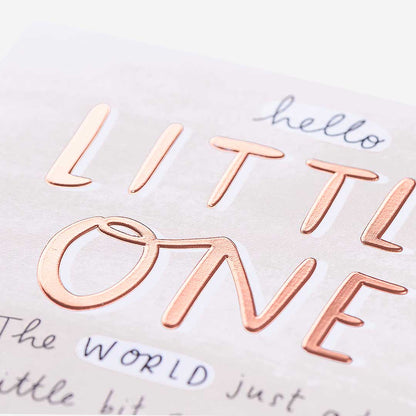 hello
LITTL
ONE
The WORLD just
little bit